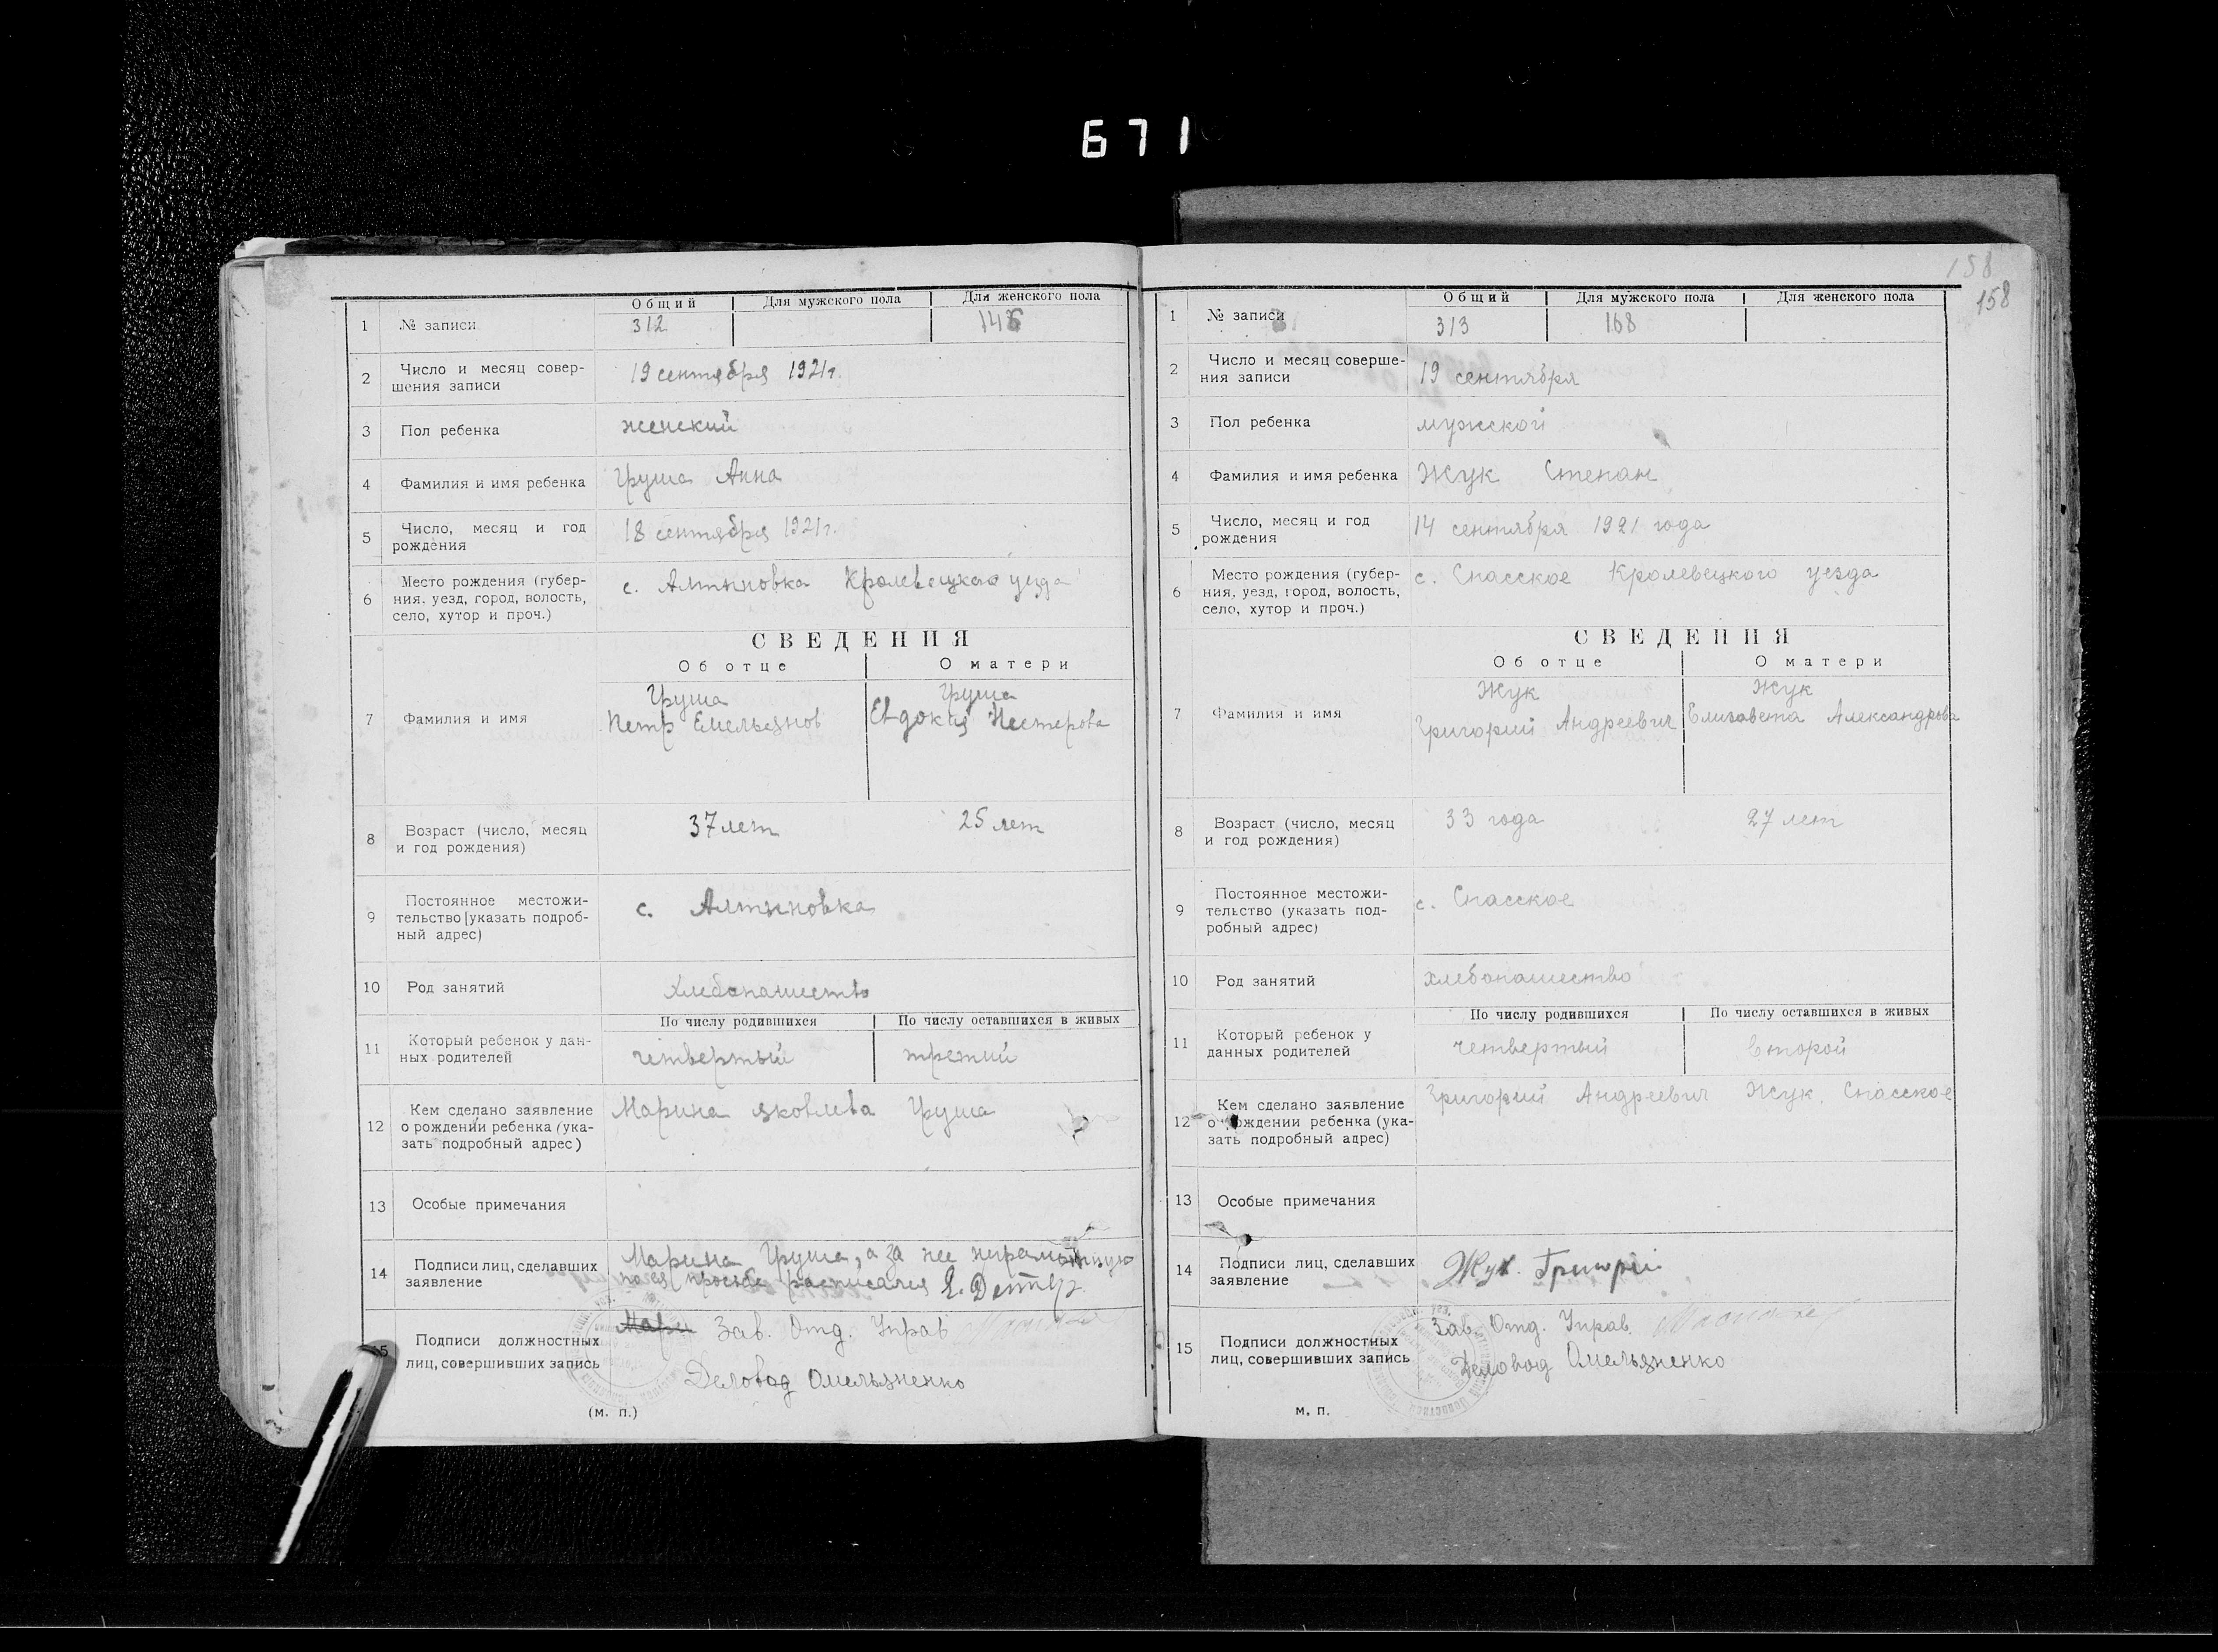 671
Общий Для мужского пола Для женского пола
1 № записи 312
2 Число и месяц совер-
шения записи 19 сентября 1921г.
3 Пол ребенка женский
4 Фамилия и имя ребенка Груша Анна
5 Число, месяц и год
рождения 18 сентября 1921г.
6 Место рождения (губер-
ния, уезд, город, волость,
село, хутор и проч.) с. Алтыновка Кролевецкаго уезда
СВЕДЕНИЯ
Об отце О матери
Груша Груша
7 Фамилия и имя Петр Емельянов Евдокия Нестерова
8 Возраст (число, месяц
и год рождения) 37 лет 25 лет
9 Постоянное местожи-
тельство [указать подроб-
ный адрес) с. Алтыновка
10 Род занятий Хлебопашество
По числу родившихся По числу оставшихся в живых
11 Который ребенок у дан-
ных родителей четвертый третий
12 Кем сделано заявление
о рождении ребенка (ука-
зать подробный адрес) Марина Яковлева Груша
13 Особые примечания
14 Подписи лиц, сделавших
заявление Марина Груша, а за нее неграмотную
по ея просьбе расписался
15 Подписи должностных
лиц, совершивших запись Мари Зав. Отд. Управ
Деловод Омельяненко
(м. п.)
158
158
Общий Для мужского пола Для женского пола
1 № записи 313 168
2 Число и месяц соверше-
ния записи 19 сентября
3 Пол ребенка мужской
4 Фамилия и имя ребенка Жук Степан
5 Число, месяц и год
рождения 14 сентября 1921 года
6 Место рождения (губер-
ния, уезд, город, волость,
село, хутор и проч.) с. Спасское Кролевецкого уезда
СВЕДЕНИЯ
Об отце О матери
Жук Жук
7 Фамилия и имя Григорий Андреевич Елизавета Александрова
8 Возраст (число, месяц
и год рождения) 33 года 27 лет
9 Постоянное местожи-
тельство (указать под-
робный адрес) с. Спасское
10 Род занятий хлебопашество
По числу родившихся По числу оставшихся в живых
11 Который ребенок у
данных родителей четвертый второй
12 Кем сделано заявление
о рождении ребенка (ука-
зать подробный адрес) Григорий Андреевич Жук. Спасское
13 Особые примечания
14 Подписи лиц, сделавших
заявление Жук. Григорій
15 Подписи должностных
лиц, совершивших запись Зав. Отд. Управ.
Деловод Омельяненко
м. п.